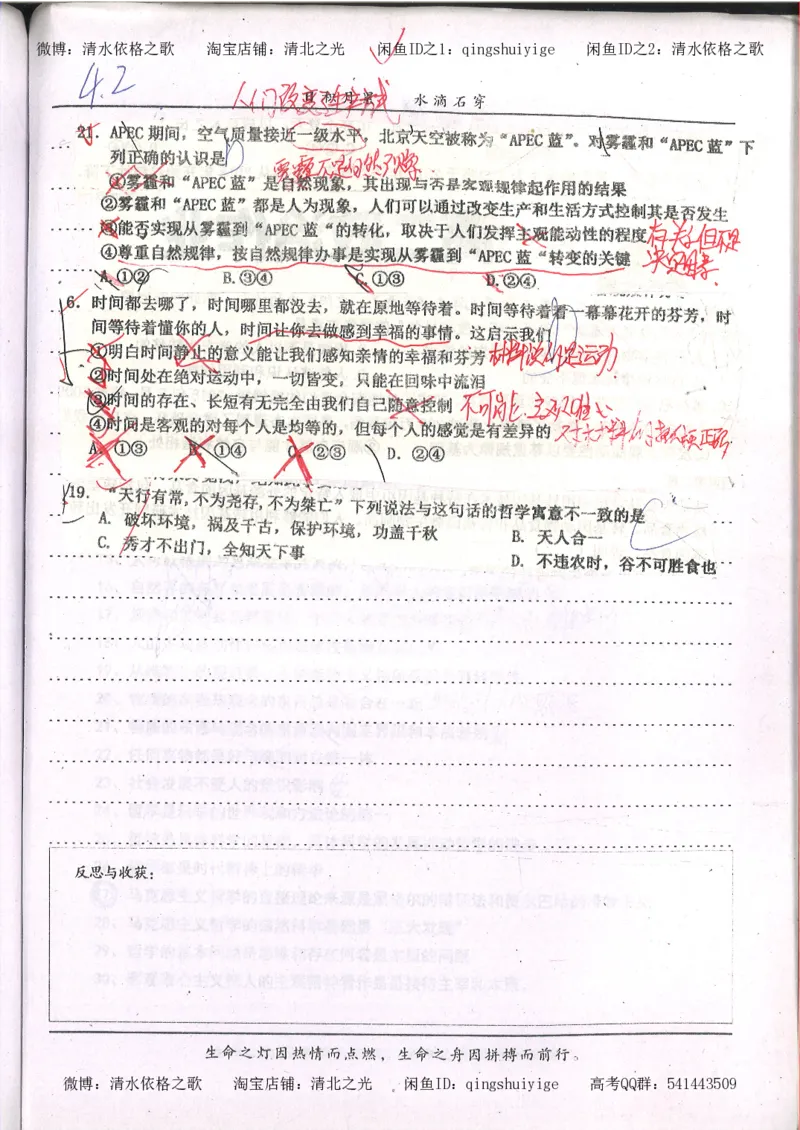 微博：清水依格之歌 淘宝店铺：清北之光 闲鱼ID之1：qingshuiyige 闲鱼ID之2：清水依格之歌
4.2
人们改变
水滴石穿
21. APEC 期间，空气质量接近一级水平，北京天空被称为“APEC 蓝”。对雾霾和“APEC 蓝”下
列正确的认识是 D
雾霾不是自然现象.
①雾霾和“APEC 蓝”是自然现象，其出现与否是客观规律起作用的结果
②雾霾和“APEC 蓝”都是人为现象，人们可以通过改变生产和生活方式控制其是否发生
③能否实现从雾霾到“APEC 蓝“的转化，取决于人们发挥主观能动性的程度 有关，但不是
④尊重自然规律，按自然规律办事是实现从雾霾到“APEC 蓝“转变的关键 决定因素.
A.①② B.③④ C.①③ D.②④
6. 时间都去哪了，时间哪里都没去，就在原地等待着。时间等待着看一幕幕花开的芬芳，时
间等待着懂你的人，时间让你去做感到幸福的事情。这启示我们
①明白时间静止的意义能让我们感知亲情的幸福和芬芳
②时间处在绝对运动中，一切皆变，只能在回味中流泪
③时间的存在、长短有无完全由我们自己随意控制 不可能，客观性
④时间是客观的对每个人是均等的，但每个人的感觉是有差异的
A. ①③ B. ①④ C. ②③ D. ②④
19. “天行有常，不为尧存，不为桀亡”下列说法与这句话的哲学寓意不一致的是 C
A. 破坏环境，祸及千古，保护环境，功盖千秋 B. 天人合一
C. 秀才不出门，全知天下事 D. 不违农时，谷不可胜食也
反思与收获：
生命之灯因热情而点燃，生命之舟因拼搏而前行。
微博：清水依格之歌 淘宝店铺：清北之光 闲鱼ID：qingshuiyige 高考QQ群：541443509